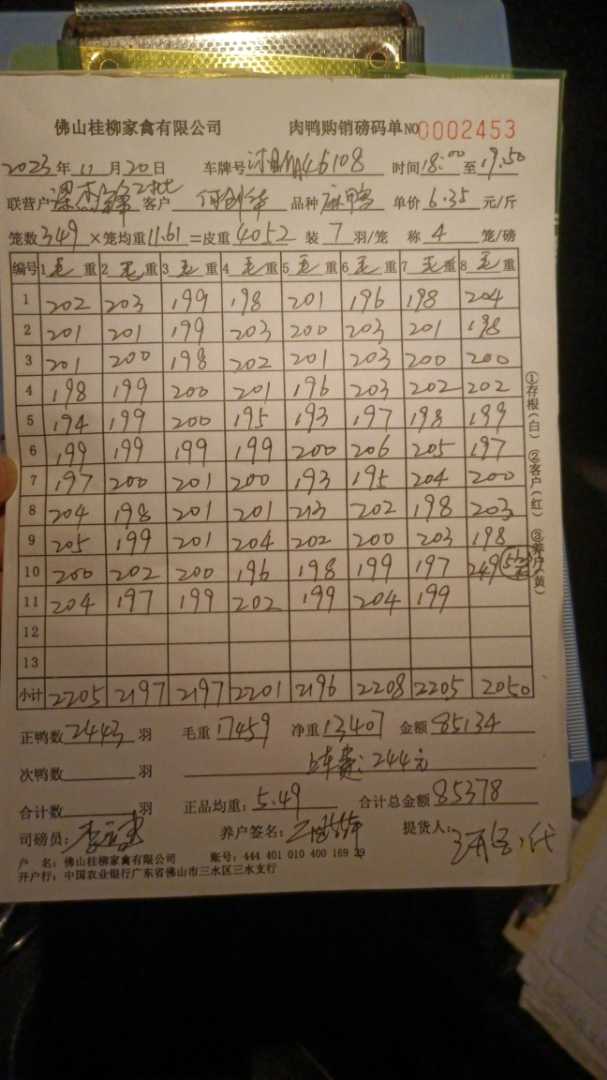 佛山桂柳家禽有限公司 肉鸭购销磅码单 NO 0002453
2023年 11月20日 车牌号 46108 时间 18:00 至 19:50
联营户 客户 品种 麻鸭 单价 6.35 元/斤
笼数 349 ×笼均重 11.61 =皮重 4052 装 7 羽/笼 称 4 笼/磅
编号 1毛重 2毛重 3毛重 4毛重 5毛重 6毛重 7毛重 8毛重
1 202 203 199 198 201 196 198 204
2 201 201 199 203 200 203 201 198
3 201 200 198 202 201 203 200 200
4 198 199 200 201 196 203 202 202
5 194 199 200 195 193 197 198 199
6 199 199 199 199 200 206 205 197
7 197 200 201 200 193 195 204 200
8 204 198 201 201 213 202 198 203
9 205 199 201 204 202 200 203 198
10 200 202 200 196 198 199 197 249
11 204 197 199 202 199 204 199
12
13
小计 2205 2197 2197 2201 2196 2208 2205 2050
正鸭数 2443 羽 毛重 17459 净重 13407 金额 85134
次鸭数 羽 上车费:244元
合计数 羽 正品均重:5.49 合计总金额 85378
司磅员: 养户签名: 提货人:
户 名:佛山桂柳家禽有限公司 账号:444 401 010 400 169 29
开户行:中国农业银行广东省佛山市三水区三水支行
①存根(白) ②客户(红) ③养户(黄)